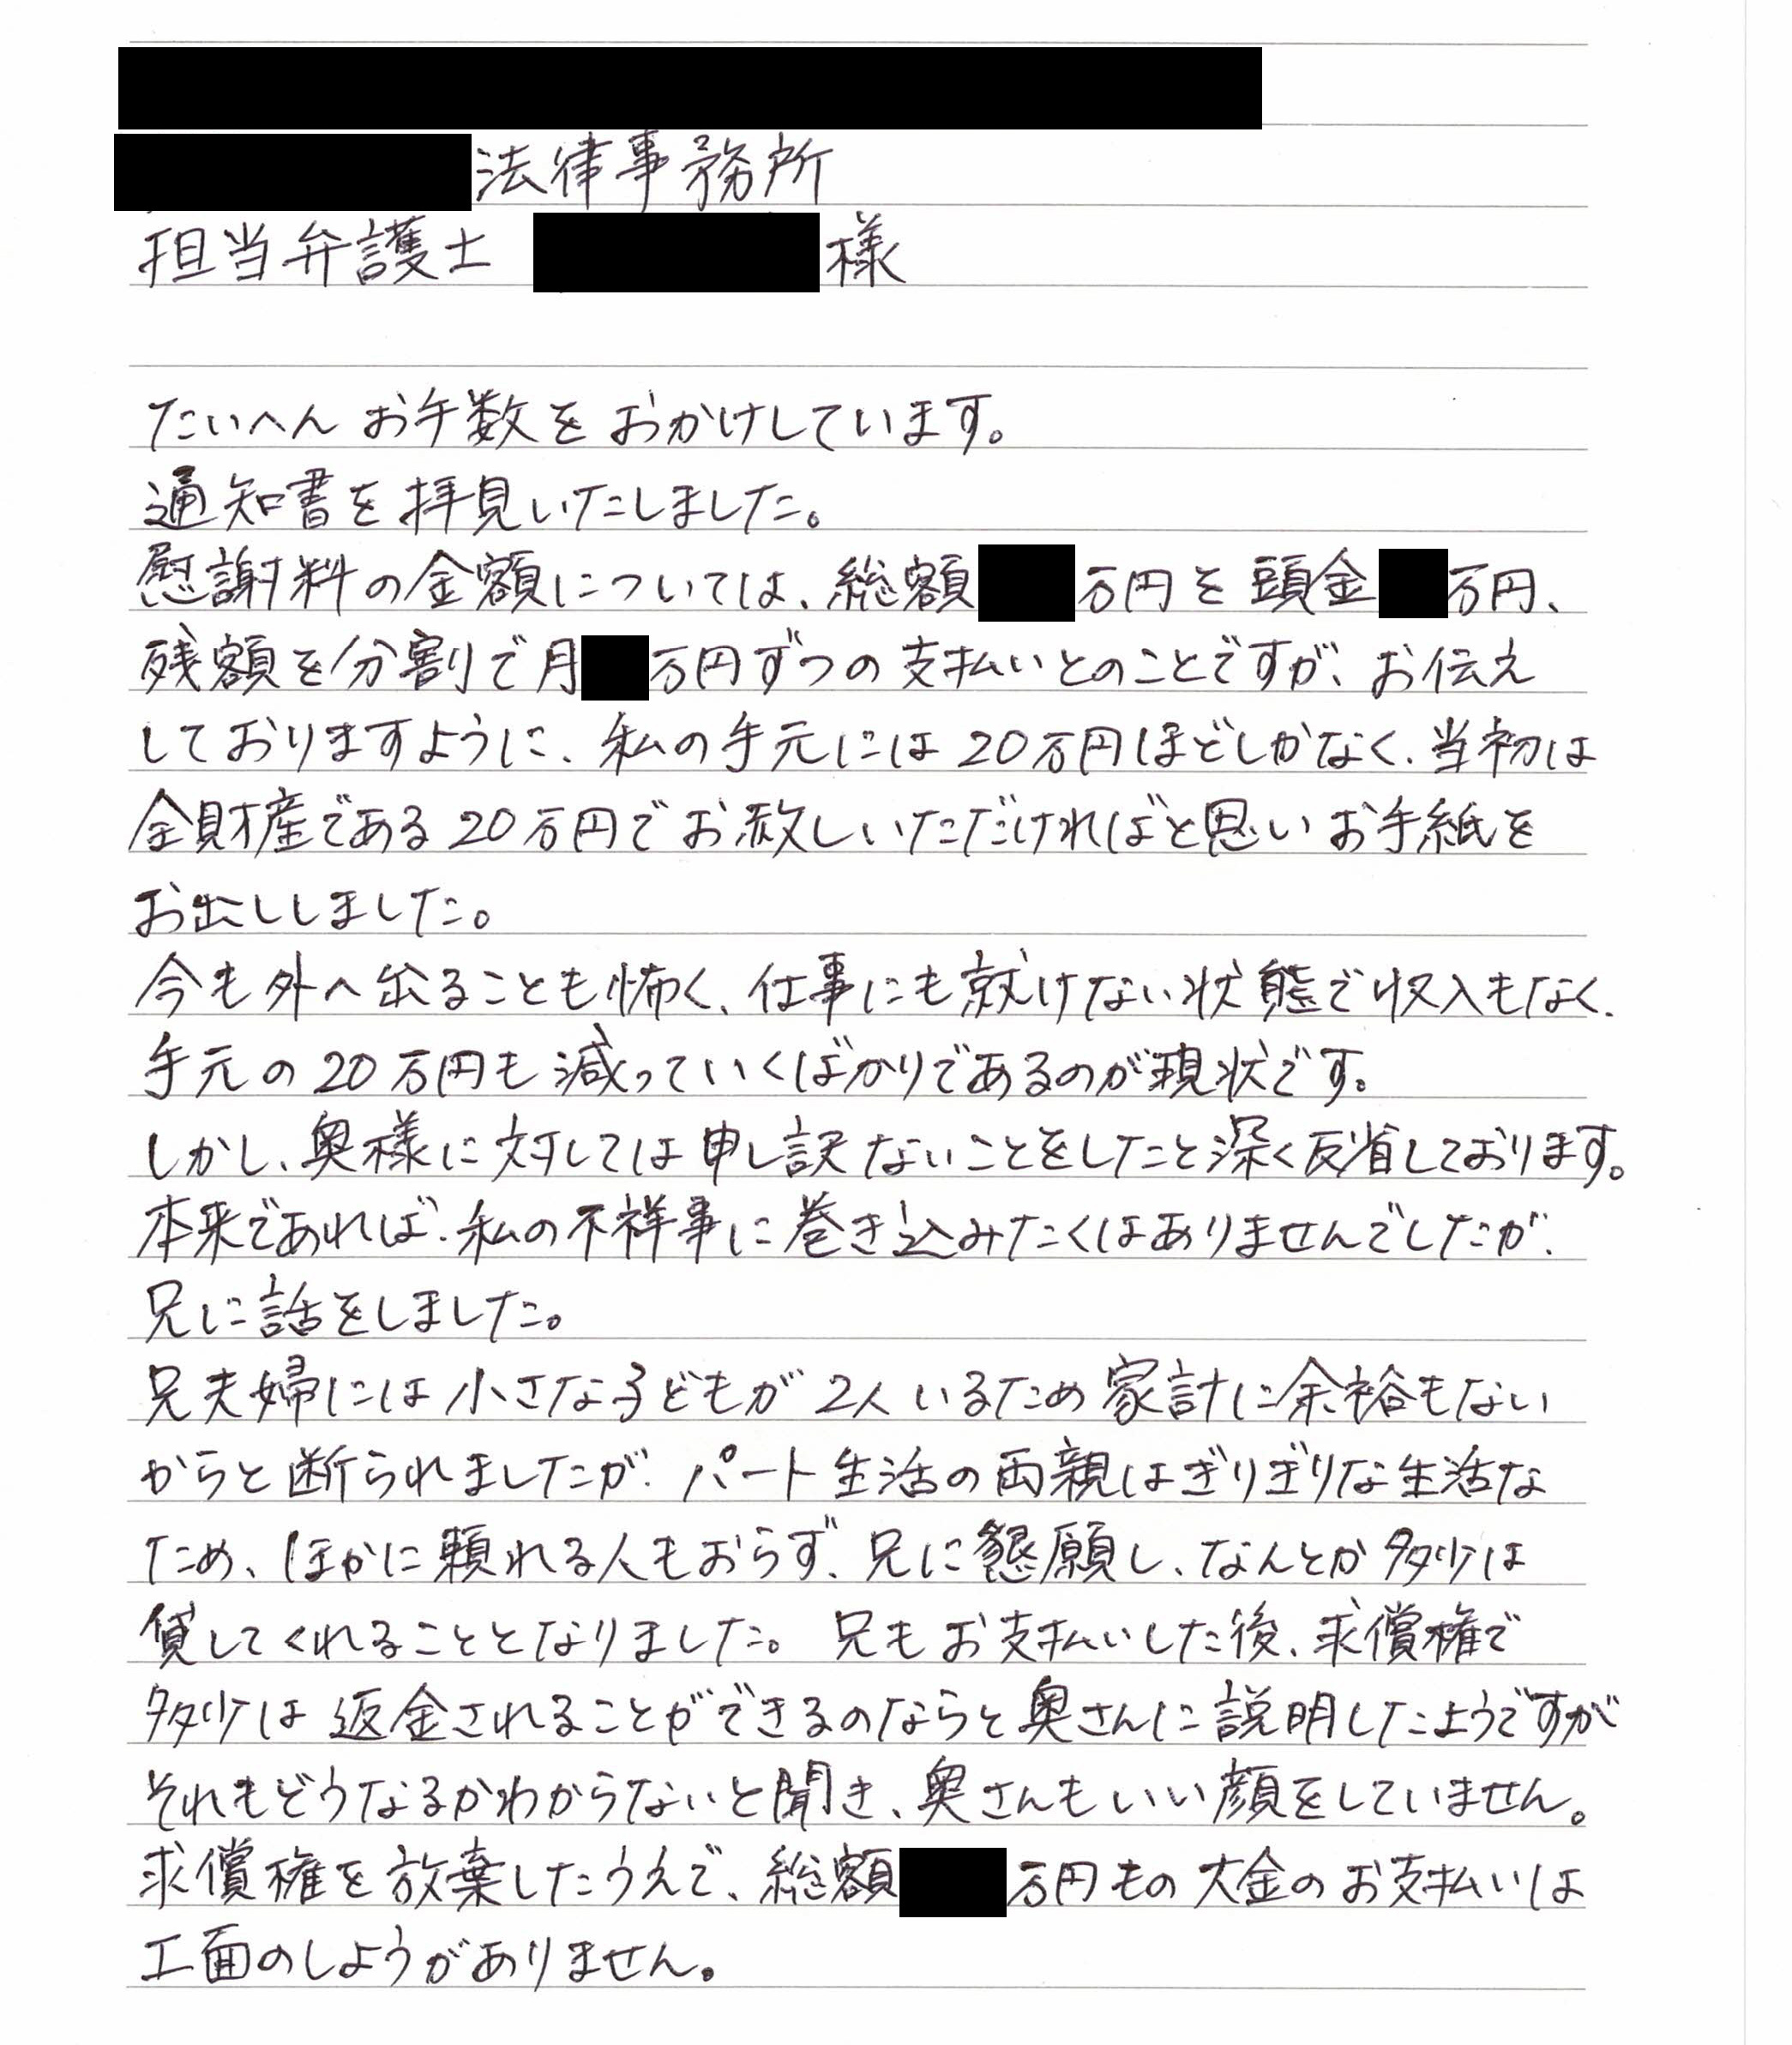 法律事務所
担当弁護士 様
たいへんお手数をおかけしています。
通知書を拝見いたしました。
慰謝料の金額については、総額 万円を頭金 万円、
残額を分割で月 万円ずつの支払いとのことですが、お伝え
しておりますように、私の手元には20万円ほどしかなく、当初は
全財産である20万円でお赦しいただければと思いお手紙を
お出ししました。
今も外へ出ることも怖く、仕事にも就けない状態で収入もなく、
手元の20万円も減っていくばかりであるのが現状です。
しかし、奥様に対しては申し訳ないことをしたと深く反省しております。
本来であれば、私の不祥事に巻き込みたくはありませんでしたが、
兄に話をしました。
兄夫婦には小さな子どもが2人いるため家計に余裕もない
からと断られましたが、パート生活の両親はぎりぎりな生活な
ため、ほかに頼れる人もおらず、兄に懇願し、なんとか多少は
貸してくれることとなりました。兄もお支払いした後、求償権で
多少は返金されることができるのならと奥さんに説明したようですが
それもどうなるかわからないと聞き、奥さんもいい顔をしていません。
求償権を放棄したうえで、総額 万円もの大金のお支払いは
工面のしようがありません。